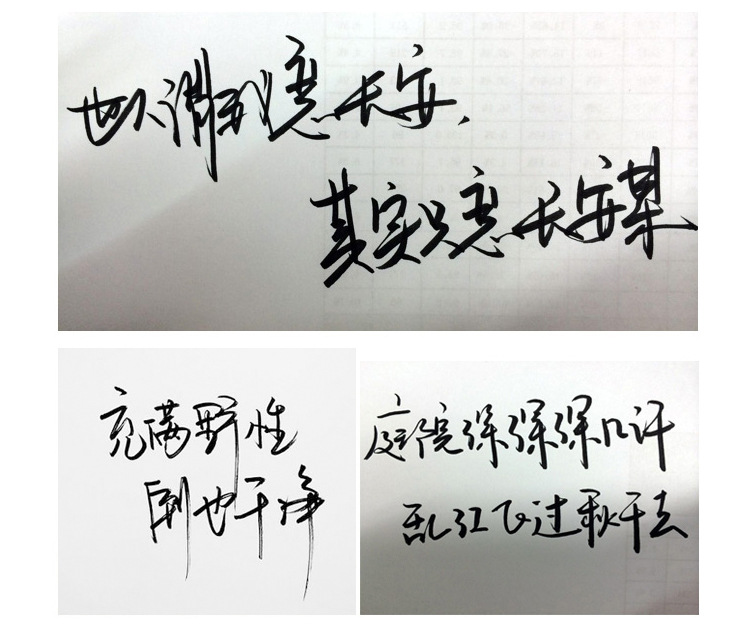 世人谓我恋长安,
其实只恋长安某
充满野性
倒也干净
庭院深深深几许
乱红飞过秋千去